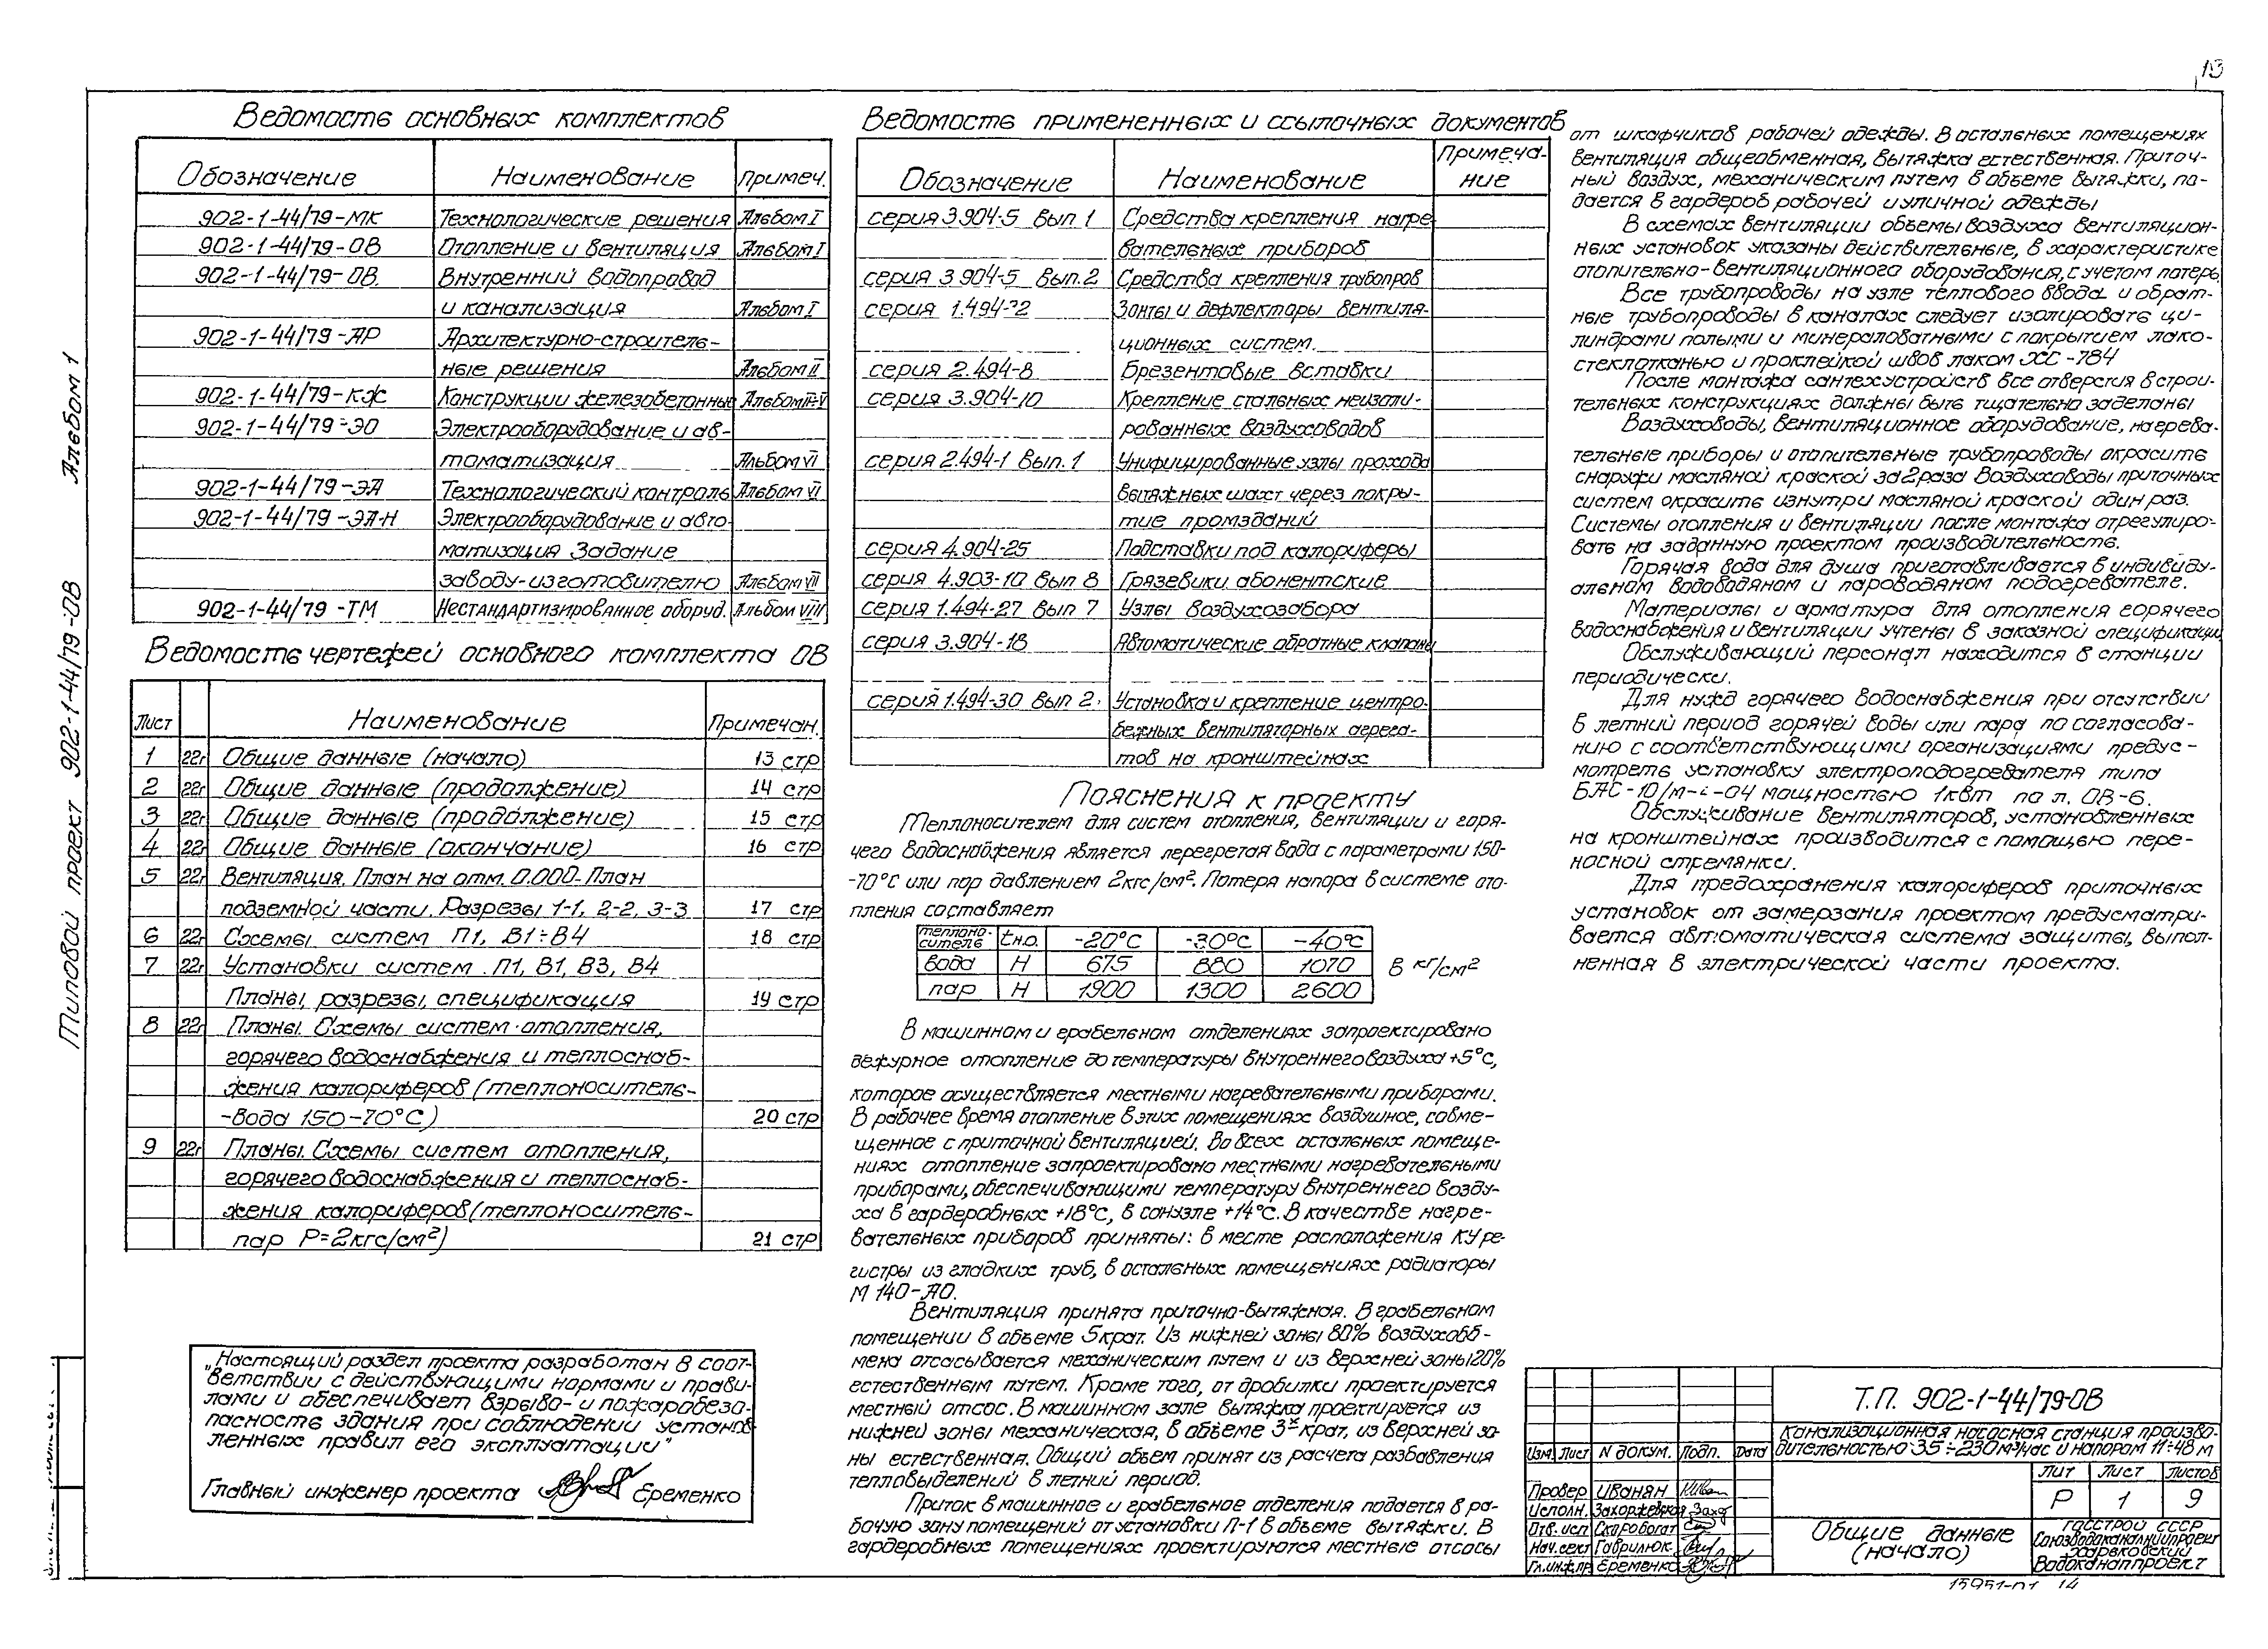 13
Типовой проект 902-1-44/79-ОВ Альбом 1
Ведомость основных комплектов
Обозначение Наименование Примеч.
902-1-44/79-МК Технологические решения Альбом I
902-1-44/79-ОВ Отопление и вентиляция Альбом I
902-1-44/79-ОВ. Внутренний водопровод
и канализация Альбом I
902-1-44/79-АР Архитектурно-строитель-
ные решения Альбом II
902-1-44/79-КЖ Конструкции железобетонные Альбом III-V
902-1-44/79-ЭО Электрооборудование и ав-
томатизация Альбом VI
902-1-44/79-ЭА Технологический контроль Альбом VI
902-1-44/79-ЭА-Н Электрооборудование и авто-
матизация Задание
заводу-изготовителю Альбом VII
902-1-44/79-ТМ Нестандартизированное оборуд. Альбом VIII
Ведомость чертежей основного комплекта ОВ
Лист Наименование Примечан.
1 22г Общие данные (начало) 13 стр
2 22г Общие данные (продолжение) 14 стр
3 22г Общие данные (продолжение) 15 стр
4 22г Общие данные (окончание) 16 стр
5 22г Вентиляция. План на отм. 0.000. План
подземной части. Разрезы 1-1, 2-2, 3-3 17 стр
6 22г Схемы систем П1, В1÷В4 18 стр
7 22г Установки систем П1, В1, В3, В4
Планы, разрезы, спецификация 19 стр
8 22г Планы. Схемы систем отопления,
горячего водоснабжения и теплоснаб-
жения калориферов (теплоноситель-
-вода 150-70°С) 20 стр
9 22г Планы. Схемы систем отопления,
горячего водоснабжения и теплоснаб-
жения калориферов (теплоноситель-
пар Р=2кгс/см²) 21 стр
„Настоящий раздел проекта разработан в соот-
ветствии с действующими нормами и прави-
лами и обеспечивает взрыво- и пожаробезо-
пасность здания при соблюдении установ-
ленных правил его эксплуатации"
Главный инженер проекта Еременко
Ведомость примененных и ссылочных документов
Обозначение Наименование Примеча-
ние
серия 3.904-5 вып. 1 Средства крепления нагре-
вательных приборов
серия 3.904-5 вып. 2 Средства крепления трубопров
серия 1.494-32 Зонты и дефлекторы вентиля-
ционных систем.
серия 2.494-8 Брезентовые вставки
серия 3.904-10 Крепление стальных неизоли-
рованных воздуховодов
серия 2.494-1 вып. 1 Унифицированные узлы прохода
вытяжных шахт через покры-
тие промзданий
серия 4.904-25 Подставки под калориферы
серия 4.903-10 вып 8 Грязевики абонентские
серия 1.494-27 вып 7 Узлы воздухозабора
серия 3.904-18 Автоматические обратные клапаны
серия 1.494-30 вып 2. Установка и крепление центро-
бежных вентиляторных агрега-
тов на кронштейнах
Пояснения к проекту
Теплоносителем для систем отопления, вентиляции и горя-
чего водоснабжения является перегретая вода с параметрами 150-
-70°С или пар давлением 2кгс/см². Потеря напора в системе ото-
пления составляет
теплоно-
ситель tн.о. -20°С -30°С -40°С
вода Н 675 880 1070
пар Н 1900 1300 2600
В кг/см²
В машинном и грабельном отделениях запроектировано
дежурное отопление до температуры внутреннего воздуха +5°С,
которое осуществляется местными нагревательными приборами.
В рабочее время отопление в этих помещениях воздушное, совме-
щенное с приточной вентиляцией. Во всех остальных помеще-
ниях отопление запроектировано местными нагревательными
приборами, обеспечивающими температуру внутреннего возду-
ха в гардеробных +18°С, в санузле +14°С. В качестве нагре-
вательных приборов приняты: в месте расположения КУ ре-
гистры из гладких труб, в остальных помещениях радиаторы
М 140-АО.
Вентиляция принята приточно-вытяжная. В грабельном
помещении в объеме 5крат. Из нижней зоны 80% воздухооб-
мена отсасывается механическим путем и из верхней зоны 20%
естественным путем. Кроме того, от дробилки проектируется
местный отсос. В машинном зале вытяжка проектируется из
нижней зоны механическая, в объеме 3х крат, из верхней зо-
ны естественная. Общий объем принят из расчета разбавления
тепловыделений в летний период.
Приток в машинное и грабельное отделения подается в ра-
бочую зону помещений от установки П-1 в объеме вытяжки. В
гардеробных помещениях проектируются местные отсосы
от шкафчиков рабочей одежды. В остальных помещениях
вентиляция общеобменная, вытяжка естественная. Приточ-
ный воздух, механическим путем в объеме вытяжки, по-
дается в гардероб рабочей и уличной одежды
В схемах вентиляции объемы воздуха вентиляцион-
ных установок указаны действительные, в характеристике
отопительно-вентиляционного оборудования, с учетом потерь.
Все трубопроводы на узле теплового ввода и обрат-
ные трубопроводы в каналах следует изолировать ци-
линдрами полыми и минераловатными с покрытием лако-
стеклотканью и проклейкой швов лаком ХС-784
После монтажа сантехустройств все отверстия в строи-
тельных конструкциях должны быть тщательно заделаны
Воздуховоды, вентиляционное оборудование, нагрева-
тельные приборы и отопительные трубопроводы окрасить
снаружи масляной краской за 2 раза Воздуховоды приточных
систем окрасить изнутри масляной краской один раз.
Системы отопления и вентиляции после монтажа отрегулиро-
вать на заданную проектом производительность.
Горячая вода для душа приготавливается в индивиду-
альном водоводяном и пароводяном подогревателе.
Материалы и арматура для отопления горячего
водоснабжения и вентиляции учтены в заказной спецификации
Обслуживающий персонал находится в станции
периодически.
Для нужд горячего водоснабжения при отсутствии
в летний период горячей воды или пара по согласова-
нию с соответствующими организациями предус-
мотреть установку электроподогревателя типа
БАС-10/м-4-04 мощностью 1квт по л. ОВ-6.
Обслуживание вентиляторов, установленных
на кронштейнах производится с помощью пере-
носной стремянки.
Для предохранения калориферов приточных
установок от замерзания проектом предусматри-
вается автоматическая система защиты, выпол-
ненная в электрической части проекта.
Т.П. 902-1-44/79-ОВ
Канализационная насосная станция произво-
дительностью 35÷230м³/час и напором 11÷48 м
Изм. Лист N докум. Подп. Дата
Провер Иванян
Исполн. Захоржевская
Отв. исп Скоробогат
Нач. сект Гаврилюк
Гл.инж.пр Еременко
Лит Лист Листов
Р 1 9
Общие данные
(начало)
Госстрой СССР
Союзводоканалниипроект
Харьковский
Водоканалпроект
15951-01 14